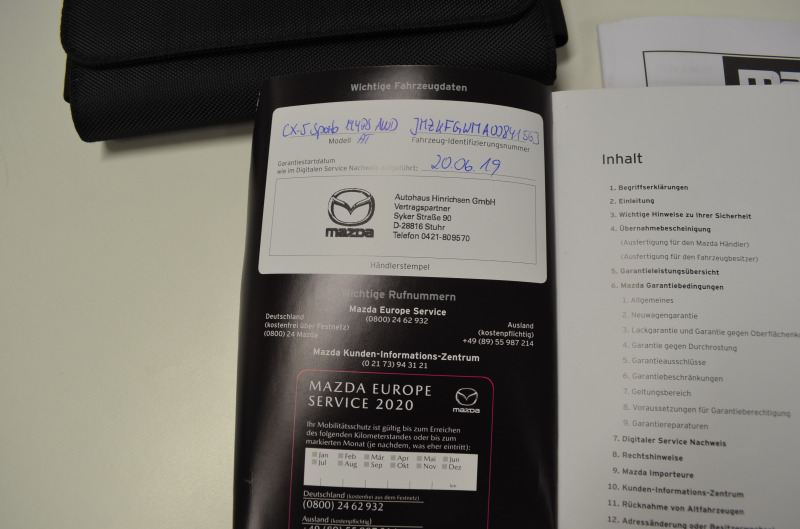 Wichtige Fahrzeugdaten
CX-5 Sports M428 AWD JMZKFGWMA00841563
Modell AT Fahrzeug-Identifizierungsnummer
Garantiestartdatum
wie im Digitalen Service Nachweis aufgeführt: 20.06.19
mazda
Autohaus Hinrichsen GmbH
Vertragspartner
Syker Straße 90
D-28816 Stuhr
Telefon 0421-809570
Händlerstempel
Wichtige Rufnummern
Mazda Europe Service
(0800) 24 62 932
Deutschland
(kostenfrei über Festnetz)
(0800) 24 Mazda
Ausland
(kostenpflichtig)
+49 (89) 55 987 214
Mazda Kunden-Informations-Zentrum
(0 21 73) 94 31 21
MAZDA EUROPE
SERVICE 2020
mazda
Ihr Mobilitätsschutz ist gültig bis zum Erreichen
des folgenden Kilometerstandes oder bis zum
markierten Monat (je nachdem, was eher eintritt):
Jan Feb Mär Apr Mai Jun
Jul Aug Sep Okt Nov Dez
km
Deutschland (kostenfrei aus dem Festnetz)
(0800) 24 62 932
Ausland (kostenpflichtig)
Inhalt
1. Begriffserklärungen
2. Einleitung
3. Wichtige Hinweise zu Ihrer Sicherheit
4. Übernahmebescheinigung
(Ausfertigung für den Mazda Händler)
(Ausfertigung für den Fahrzeugbesitzer)
5. Garantieleistungsübersicht
6. Mazda Garantiebedingungen
1. Allgemeines
2. Neuwagengarantie
3. Lackgarantie und Garantie gegen Oberflächenko
4. Garantie gegen Durchrostung
5. Garantieausschlüsse
6. Garantiebeschränkungen
7. Geltungsbereich
8. Voraussetzungen für Garantieberechtigung
9. Garantiereparaturen
7. Digitaler Service Nachweis
8. Rechtshinweise
9. Mazda Importeure
10. Kunden-Informations-Zentrum
11. Rücknahme von Altfahrzeugen
12. Adressänderung oder Besitzerwechsel